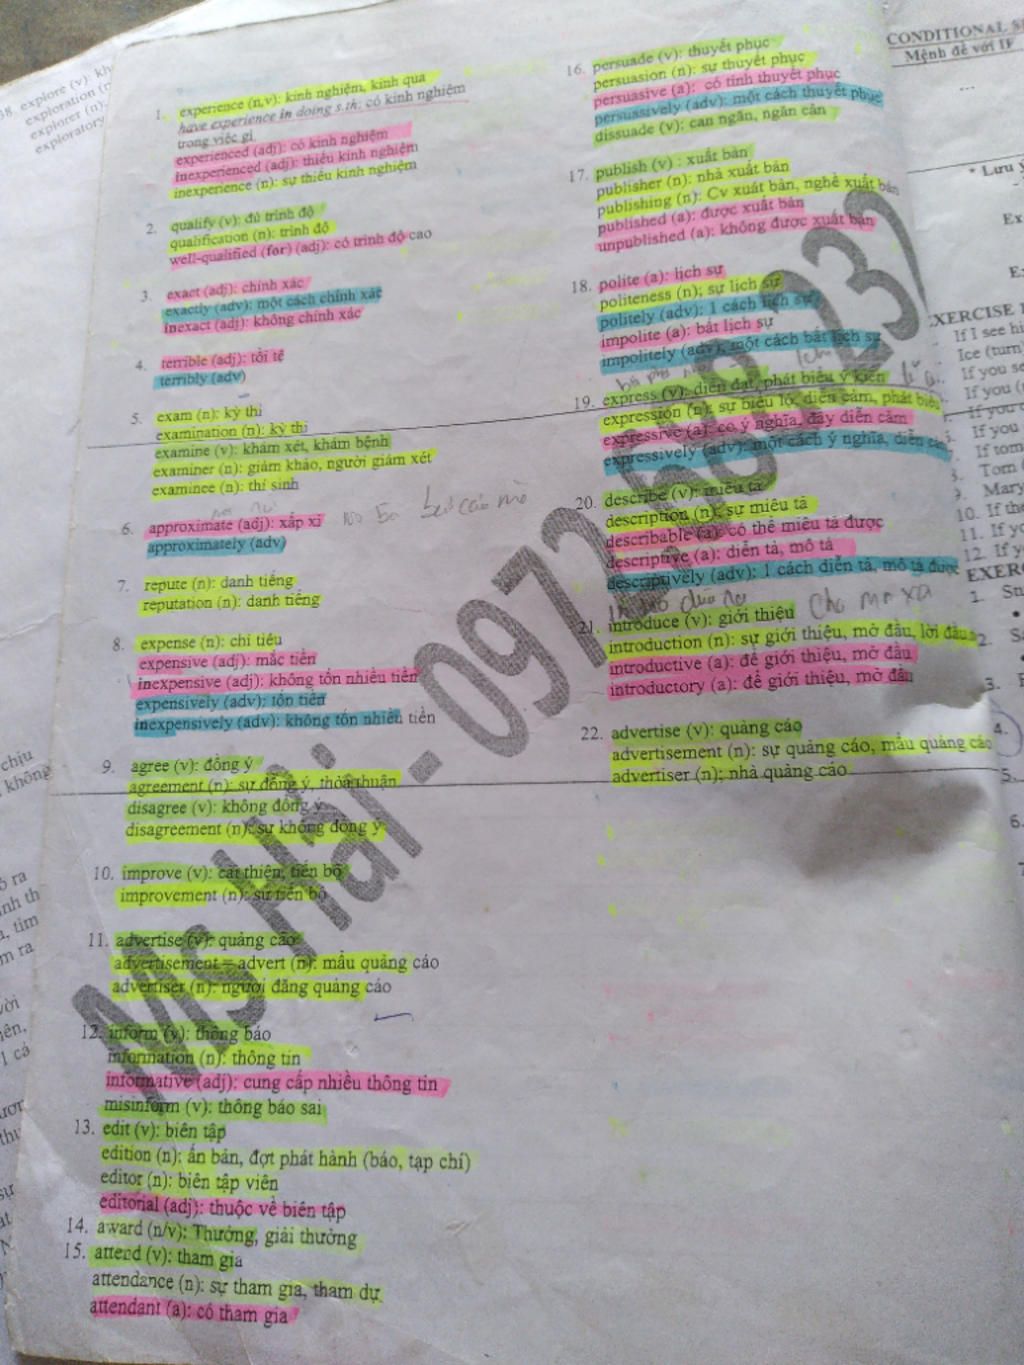 38. explore (v): kh
exploration (n
explorer (n):
exploratory
chịu
không
ỏ ra
tìm
m ra
1. experience (n,v): kinh nghiệm, kinh qua
have experience in doing s.th: có kinh nghiệm
trong việc gì
experienced (adj): có kinh nghiệm
inexperienced (adj): thiếu kinh nghiệm
inexperience (n): sự thiếu kinh nghiệm
2. qualify (v): đủ trình độ
qualification (n): trình độ
well-qualified (for) (adj): có trình độ cao
3. exact (adj): chính xác
exactly (adv): một cách chính xác
inexact (adj): không chính xác
4. terrible (adj): tồi tệ
terribly (adv)
5. exam (n): kỳ thi
examination (n): kỳ thi
examine (v): khám xét, khám bệnh
examiner (n): giám khảo, người giám xét
examinee (n): thí sinh
6. approximate (adj): xấp xỉ
approximately (adv)
7. repute (n): danh tiếng
reputation (n): danh tiếng
8. expense (n): chi tiêu
expensive (adj): mắc tiền
inexpensive (adj): không tốn nhiều tiền
expensively (adv): tốn tiền
inexpensively (adv): không tốn nhiều tiền
9. agree (v): đồng ý
agreement (n): sự đồng ý, thỏa thuận
disagree (v): không đồng ý
disagreement (n): sự không đồng ý
10. improve (v): cải thiện, tiến bộ
improvement (n): sự tiến bộ
11. advertise (v): quảng cáo
advertisement = advert (n): mẩu quảng cáo
advertiser (n): người đăng quảng cáo
12. inform (v): thông báo
information (n): thông tin
informative (adj): cung cấp nhiều thông tin
misinform (v): thông báo sai
13. edit (v): biên tập
edition (n): ấn bản, đợt phát hành (báo, tạp chí)
editor (n): biên tập viên
editorial (adj): thuộc về biên tập
14. award (n/v): Thưởng, giải thưởng
15. attend (v): tham gia
attendance (n): sự tham gia, tham dự
attendant (a): có tham gia
16. persuade (v): thuyết phục
persuasion (n): sự thuyết phục
persuasive (a): có tính thuyết phục
persuasively (adv): một cách thuyết phục
dissuade (v): can ngăn, ngăn cản
17. publish (v) : xuất bản
publisher (n): nhà xuất bản
publishing (n): Cv xuất bản, nghề xuất bản
published (a): được xuất bản
unpublished (a): không được xuất bản
18. polite (a): lịch sự
politeness (n); sự lịch sự
politely (adv): 1 cách lịch sự
impolite (a): bất lịch sự
impolitely (adv): một cách bất lịch sự
19. express (v): diễn đạt, phát biểu ý kiến
expression (n): sự biểu lộ, diễn cảm, phát biểu
expressive (a): có ý nghĩa, đầy diễn cảm
expressively (adv): một cách ý nghĩa, diễn cảm
20. describe (v): miêu tả
description (n): sự miêu tả
describable (a): có thể miêu tả được
descriptive (a): diễn tả, mô tả
descriptively (adv): 1 cách diễn tả, mô tả được
21. introduce (v): giới thiệu
introduction (n): sự giới thiệu, mở đầu, lời đầu
introductive (a): để giới thiệu, mở đầu
introductory (a): để giới thiệu, mở đầu
22. advertise (v): quảng cáo
advertisement (n): sự quảng cáo, mẩu quảng cáo
advertiser (n); nhà quảng cáo
Ms Hải - 097
237
CONDITIONAL S
Mệnh đề với IF
* Lưu ý
Ex
EXERCISE 1
If I see hi
Ice (turn)
If you se
If you (
If you
If you
7. If tom
8. Tom (
9. Mary
10. If the
11. If yo
12. If y
EXERC
1. Sn
2. So
3.
4.
5.
6.